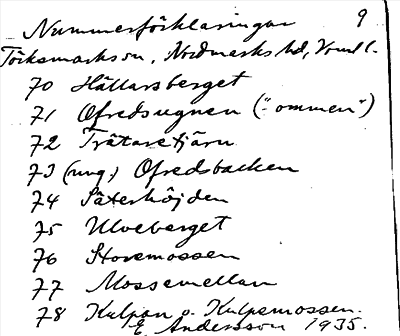 Nummerförklaringar 9
Töcksmarks sn, Nordmarks hd, Vrml l.
70 Hällarsberget
71 Ofredsugnen ("-ommen")
72 Trätaretjärn
73 (ung.) Ofredsbacken
74 Säterhöjden
75 Ulveberget
76 Storemossen
77 Mossemellan
78 Kulpan o. Kulpemossen.
E. Andersson 1935.